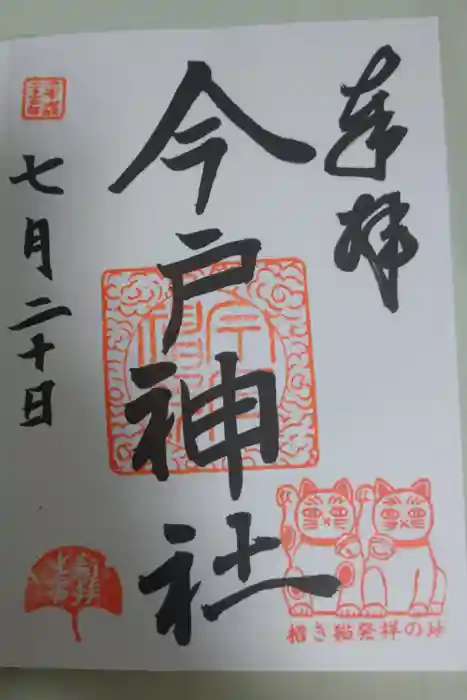 奉拝
今戸神社
七月二十日
招き猫発祥の地